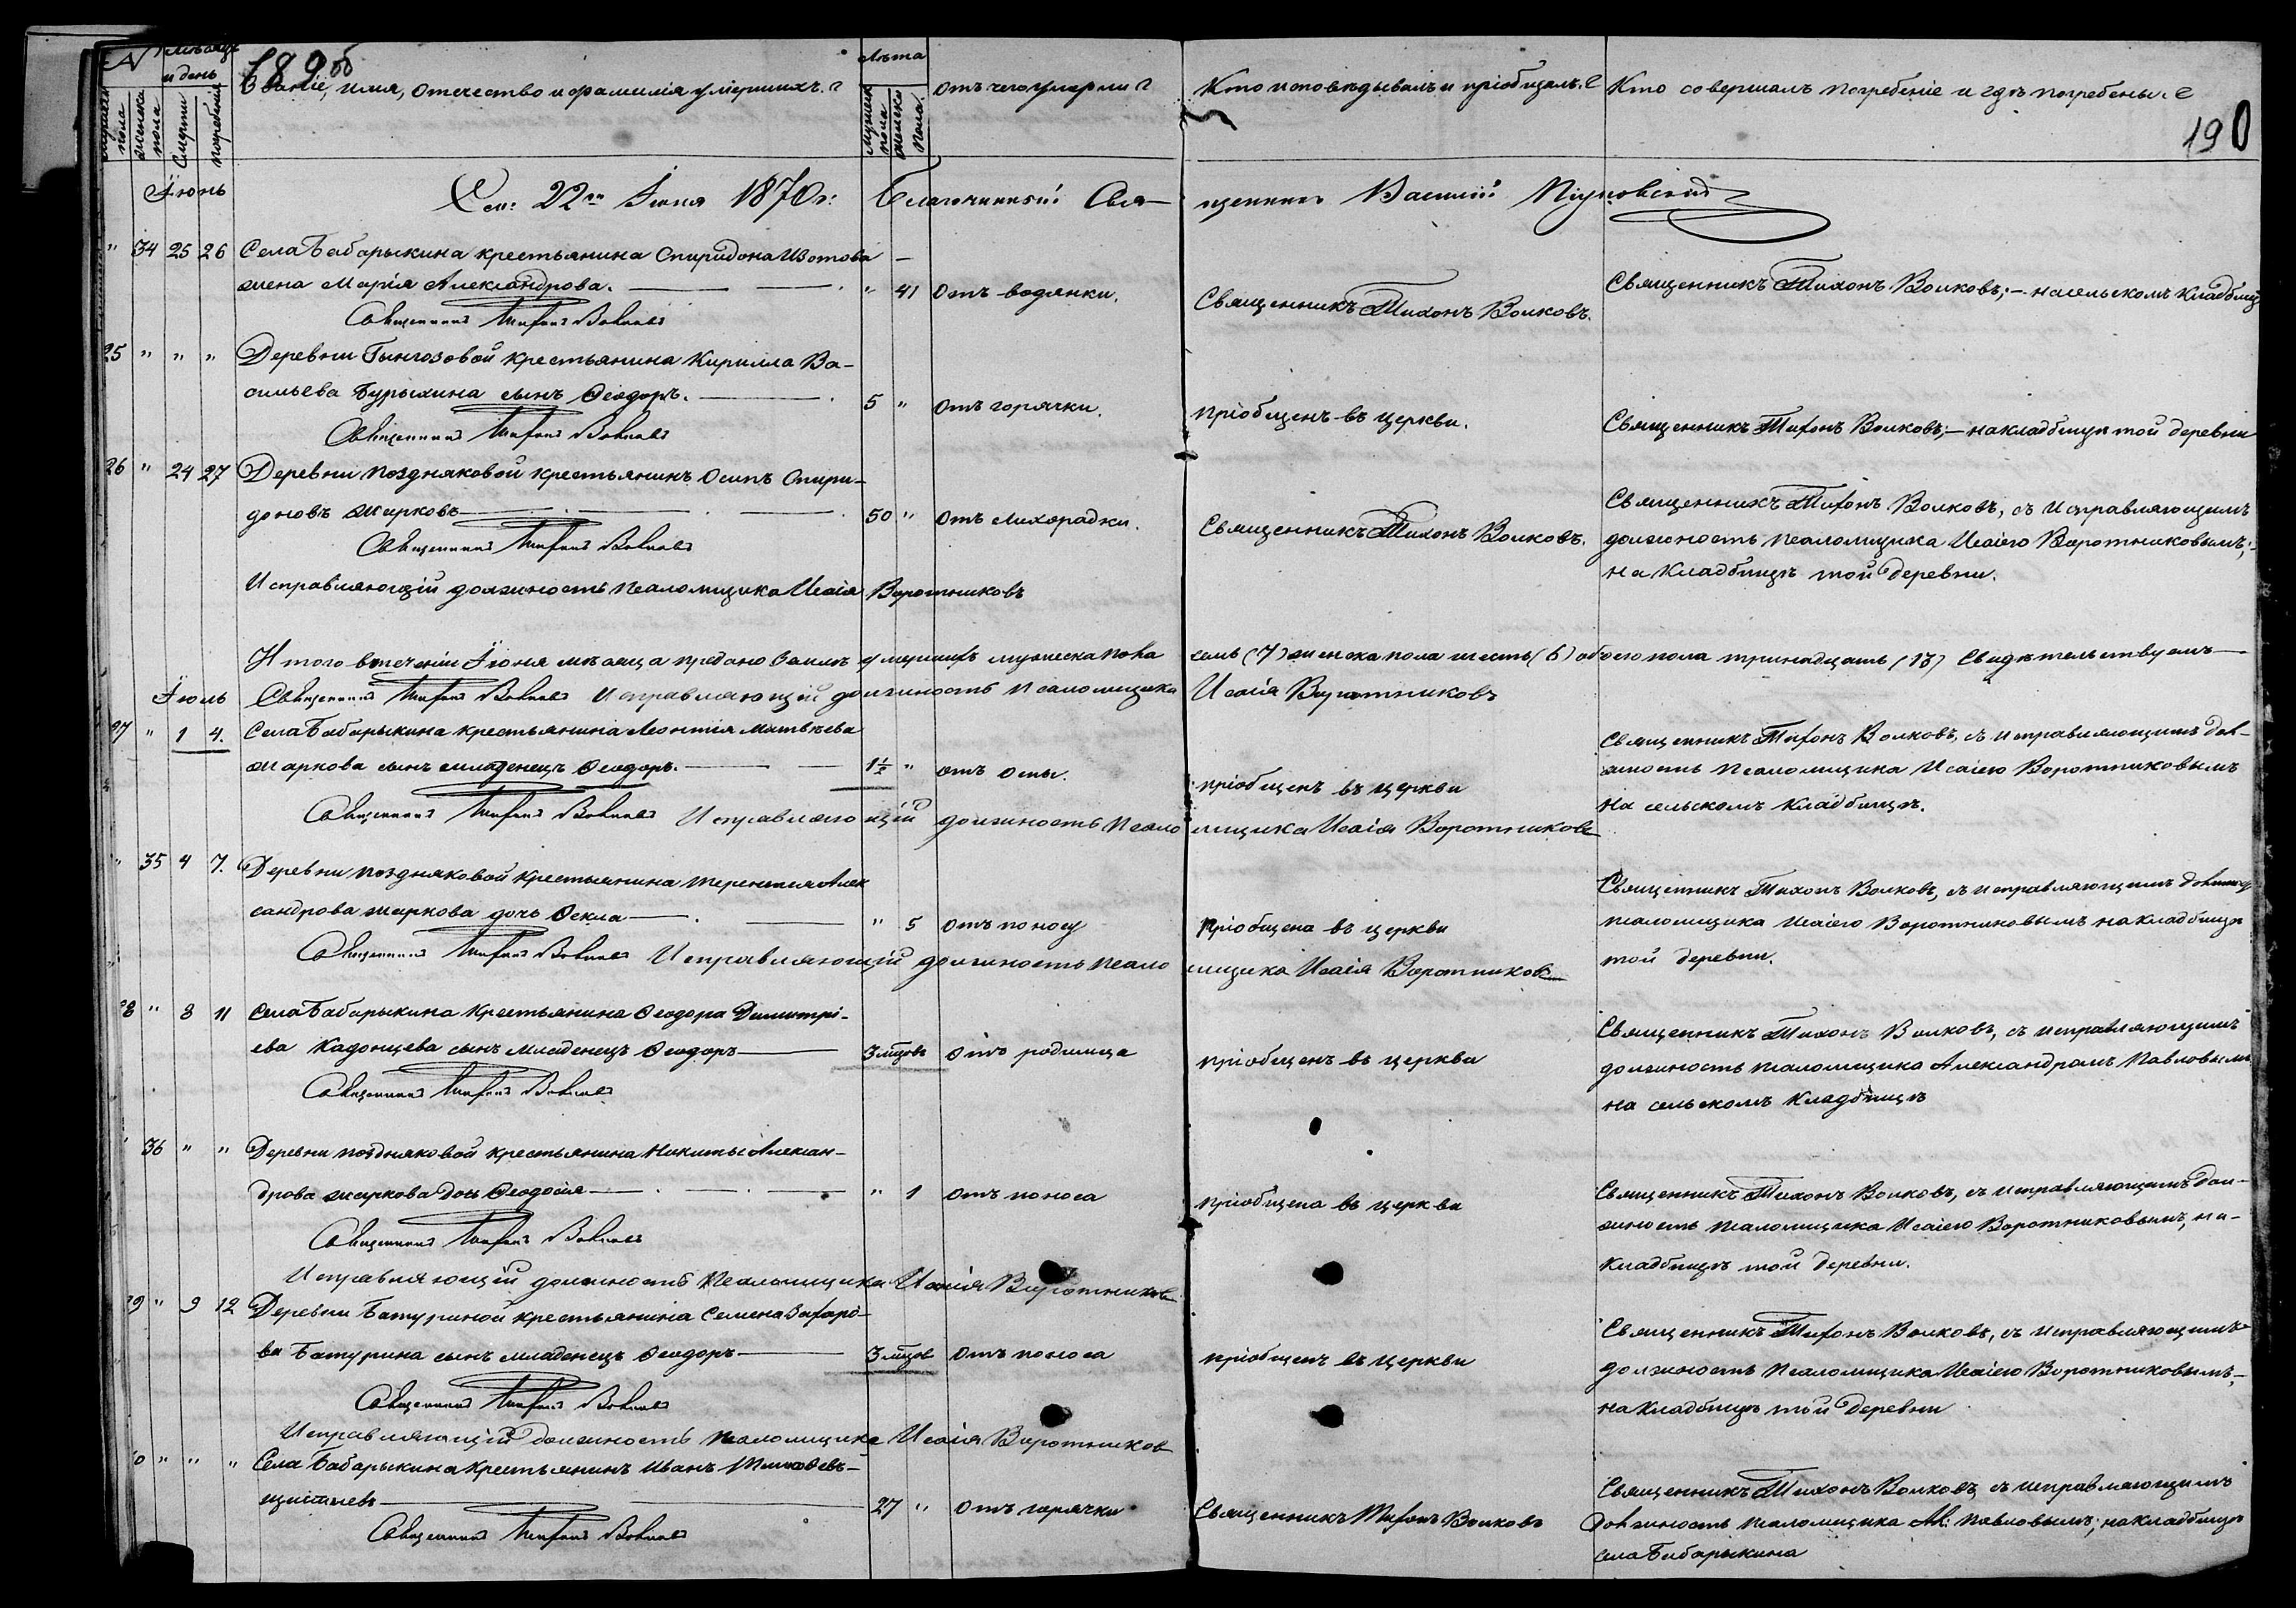 № Мѣсяцъ и день
189 об
Званіе, имя, отечество и фамилія умершихъ.
Лѣта
отъ чего умерли
Кто исповѣдывалъ и пріобщалъ.
Кто совершалъ погребеніе и гдѣ погребены.
мужеска пола
женска пола
смерти
погребенія
мужеск пола
женска пола
190
Іюнь
22го Іюня 1870 г: Благочинный Свя-
щенникъ Василій
" 34 25 26 Села Бабарыкина крестьянина Спиридона Изотова
жена Марія Александрова. " 41 отъ водянки. Священникъ Тихонъ Волковъ. Священникъ Тихонъ Волковъ; – на сельскомъ кладбищѣ
Священникъ Тихонъ Волковъ
25 " " " Деревни крестьянина Кирилла Ва-
сильева Бурыхина сынъ Ѳеодоръ. 5 " отъ горячки. пріобщенъ въ церкви. Священникъ Тихонъ Волковъ; – на кладбищѣ той деревни
Священникъ Тихонъ Волковъ
26 " 24 27 Деревни Поздняковой крестьянинъ Осипъ Спири-
доновъ Жарковъ 50 " отъ лихорадки. Священникъ Тихонъ Волковъ. Священникъ Тихонъ Волковъ, съ исправляющимъ
должность псаломщика Исаіею Воротниковымъ;-
на кладбищѣ той деревни.
Священникъ Тихонъ Волковъ
Исправляющій должность псаломщика Исаія Воротниковъ
Итого втеченіи Іюня мѣсяца предано землѣ умершихъ мужеска пола семь (7) женска пола шесть (6) обоего пола тринадцать (13) Свидѣтельствуемъ
Іюль Священникъ Тихонъ Волковъ Исправляющій должность псаломщика Исаія Воротниковъ
27 " 1 4. Села Бабарыкина крестьянина Леонтія Матвѣева
Жаркова сынъ младенецъ Ѳеодоръ. 1½ " отъ оспы. пріобщенъ въ церкви Священникъ Тихонъ Волковъ, съ исправляющимъ дол-
жность псаломщика Исаіею Воротниковымъ
на сельскомъ кладбищѣ.
Священникъ Тихонъ Волковъ Исправляющій должность псаломщика Исаія Воротниковъ
" 35 4 7. Деревни Поздняковой крестьянина Терентія Алек
сандрова Жаркова дочь Ѳекла " 5 отъ поносу пріобщена въ церкви Священникъ Тихонъ Волковъ, съ исправляющимъ должность
псаломщика Исаіею Воротниковымъ на кладбищѣ
той деревни.
Священникъ Тихонъ Волковъ Исправляющій должность псаломщика Исаія Воротниковъ
28 " 8 11 Села Бабарыкина крестьянина Ѳеодора Димитрі-
ева Кадонцева сынъ младенецъ Ѳеодоръ 3 мцовъ отъ родимца пріобщенъ въ церкви Священникъ Тихонъ Волковъ, съ исправляющимъ
должность псаломщика Александромъ Павловымъ
на сельскомъ кладбищѣ
Священникъ Тихонъ Волковъ
" 36 " " Деревни Поздняковой крестьянина Никиты Алексан-
дрова Жаркова дочь Ѳеодосія " 1 отъ поноса пріобщена въ церкви Священникъ Тихонъ Волковъ, съ исправляющимъ дол-
жность псаломщика Исаіею Воротниковымъ, на-
кладбищѣ той деревни.
Священникъ Тихонъ Волковъ
Исправляющій должность псаломщика Исаія Воротниковъ
29 " 9 12 Деревни Батуриной крестьянина Семена Захаро-
ва Батурина сынъ младенецъ Ѳеодоръ 3 мцов отъ поноса пріобщенъ въ церкви Священникъ Тихонъ Волковъ, съ исправляющимъ
должность псаломщика Исаіею Воротниковымъ,-
на кладбищѣ той деревни
Священникъ Тихонъ Волковъ
Исправляющій должность псаломщика Исаія Воротников
30 " " " Села Бабарыкина крестьянинъ Иванъ
27 " отъ горячки Священникъ Тихонъ Волковъ Священникъ Тихонъ Волковъ, съ исправляющимъ
должность псаломщика Ал: Павловымъ; на кладбищѣ
села Бабарыкина
Священникъ Тихонъ Волковъ